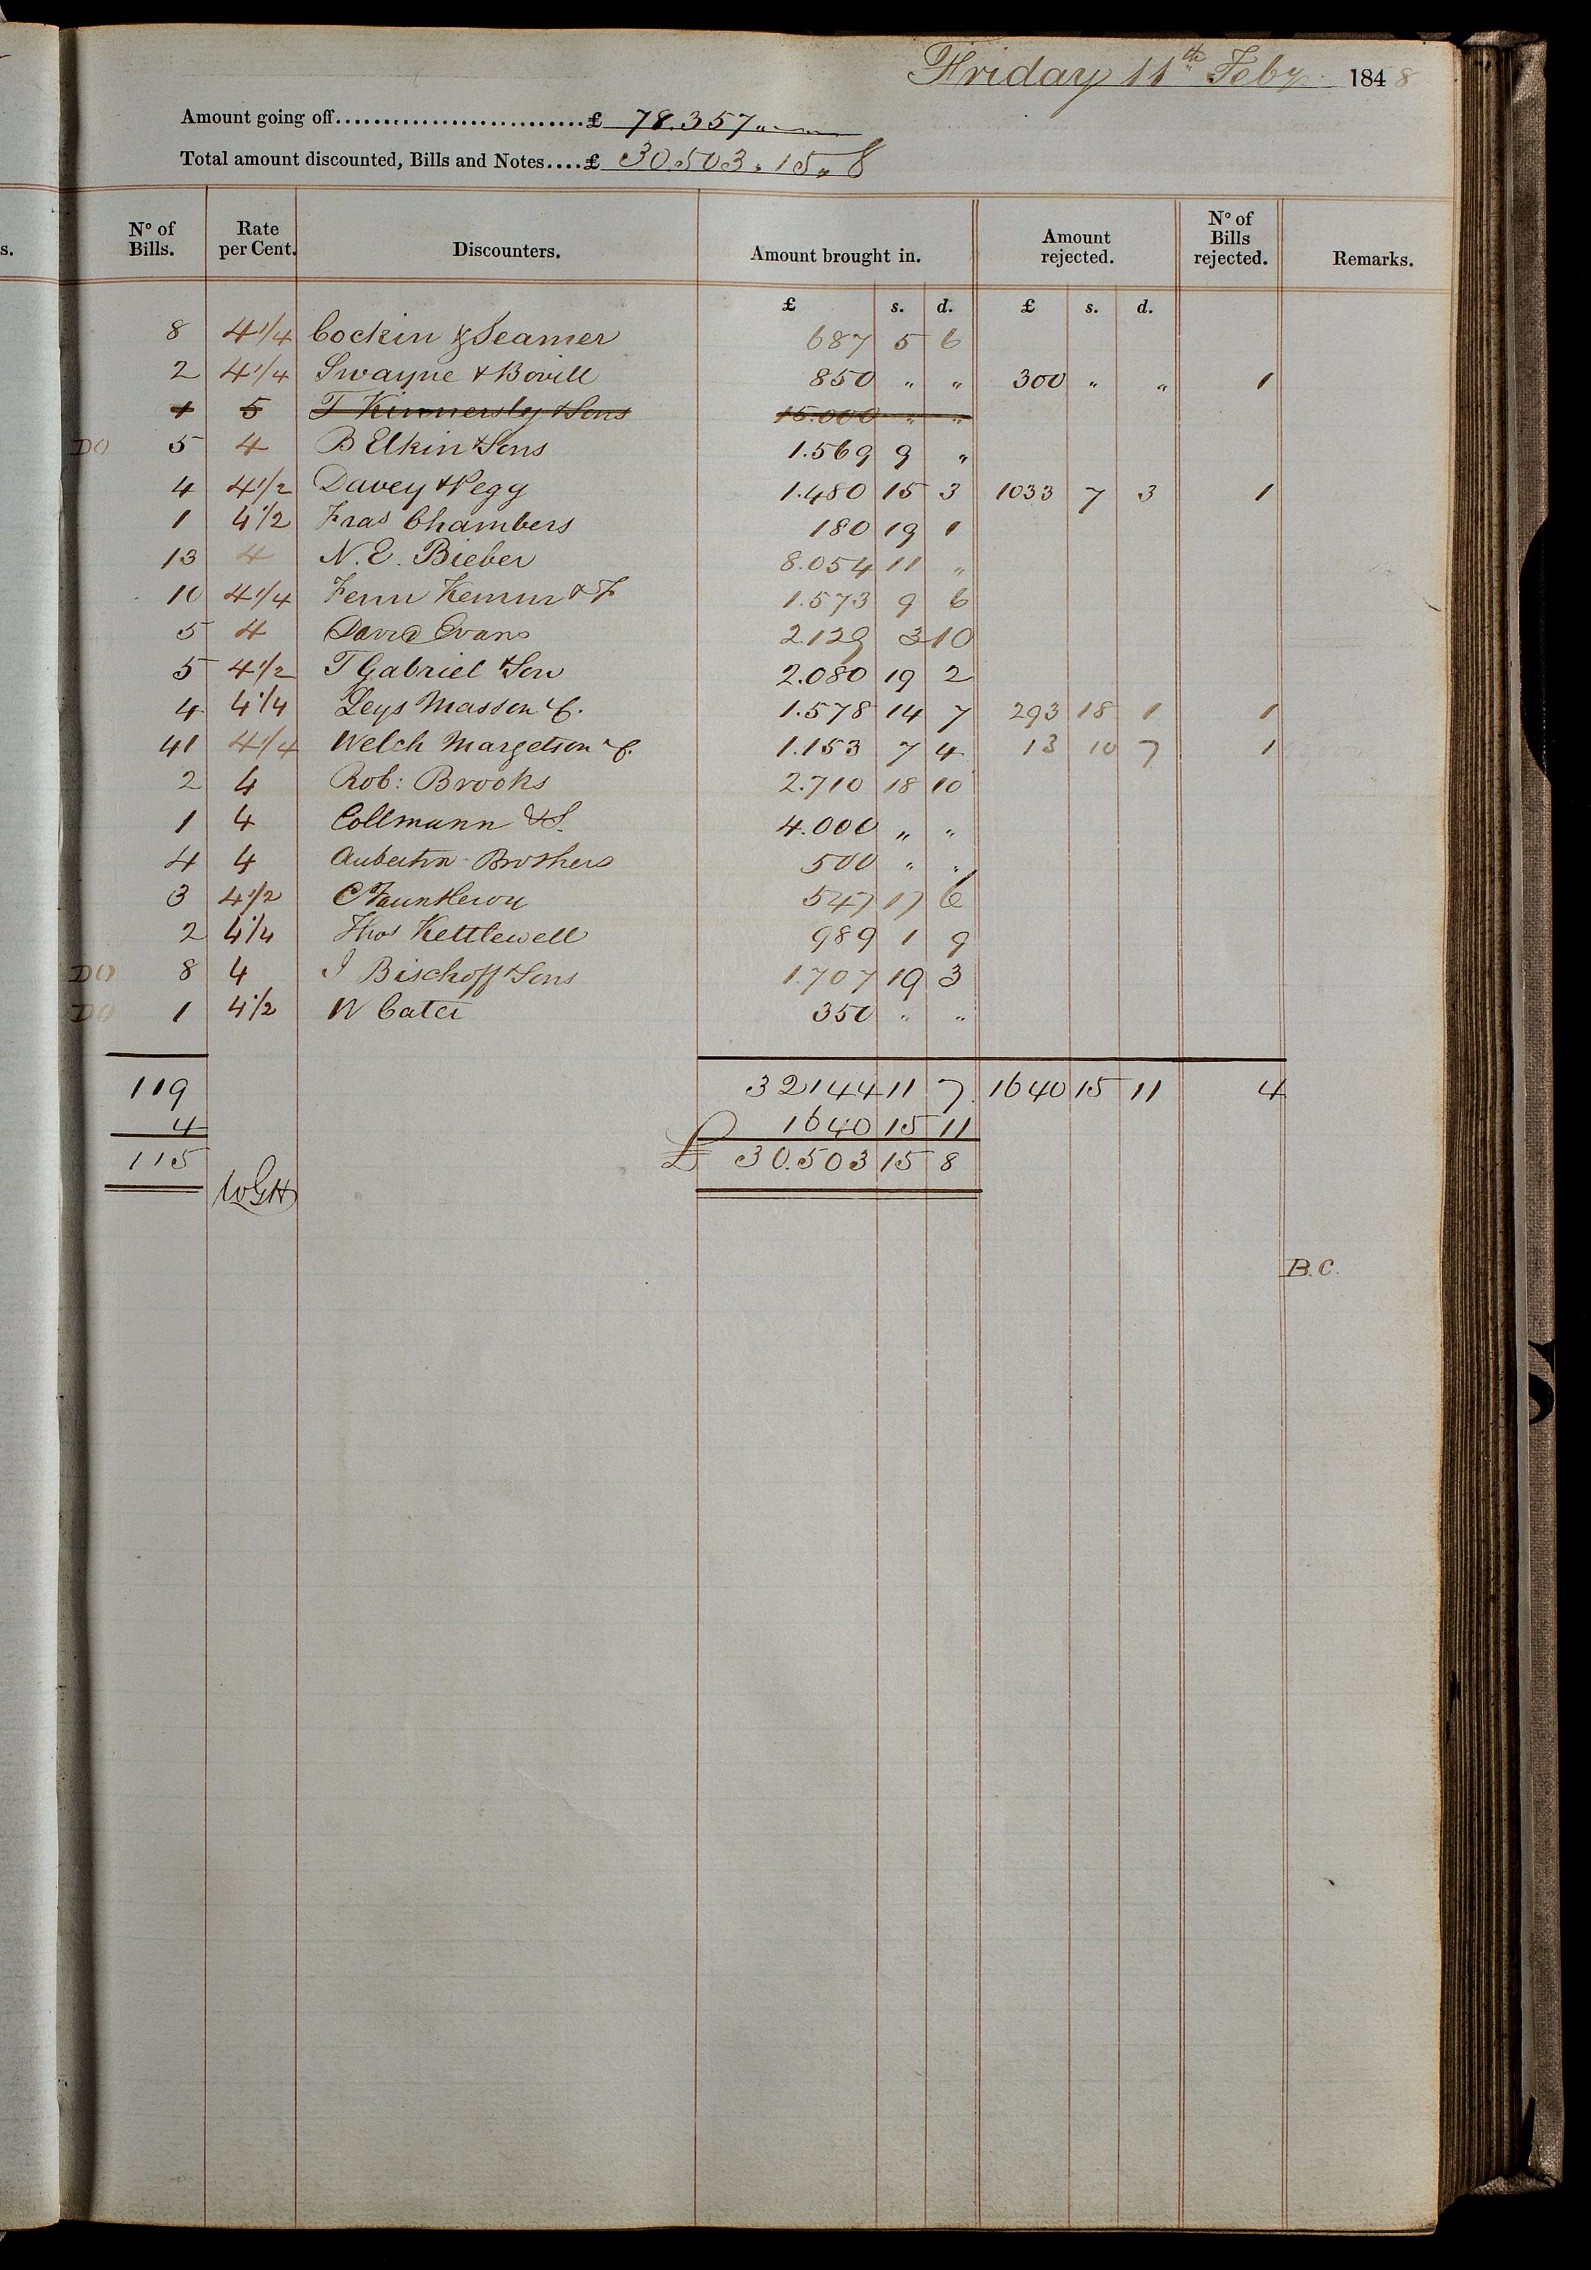 Friday 11th Feby 1848
Amount going off...........................£ 78.357 " —
Total amount discounted, Bills and Notes....£ 30.503 " 15 " 8
s. No of Bills. Rate per Cent. Discounters. Amount brought in. Amount rejected. No of Bills rejected. Remarks.
£ s. d. £ s. d.
8 4 1/4 Cockin & Seamer 687 5 6
2 4 1/4 Swayne & Bovill 850 " " 300 " " 1
1 5 T Kinnersley & Sons 15.000 " "
DO 5 4 B Elkin & Sons 1.569 9 "
4 4 1/2 Davey & Pegg 1.480 15 3 1033 7 3 1
1 4 1/2 Fras Chambers 180 19 1
13 4 N. E. Bieber 8.054 11 "
10 4 1/4 Fenn & F 1.573 9 6
5 4 David Evans 2.129 3 10
5 4 1/2 T Gabriel & Son 2.080 19 2
4 4 1/4 Leys Masson & C. 1.578 14 7 293 18 1 1
41 4 1/4 Welch Margetson & C. 1.153 7 4 13 10 7 1
2 4 Rob: Brooks 2.710 18 10
1 4 Collmann & S. 4.000 " "
4 4 Aubertin Brothers 500 " "
3 4 1/2 C Fauntleroy 547 17 6
2 4 1/4 Thos Kettlewell 989 1 9
DO 8 4 J Bischoff & Sons 1.707 19 3
DO 1 4 1/2 W Cater 350 " "
119 32144 11 7 1640 15 11 4
4 1640 15 11
115 £ 30.503 15 8
WGH
B.C.